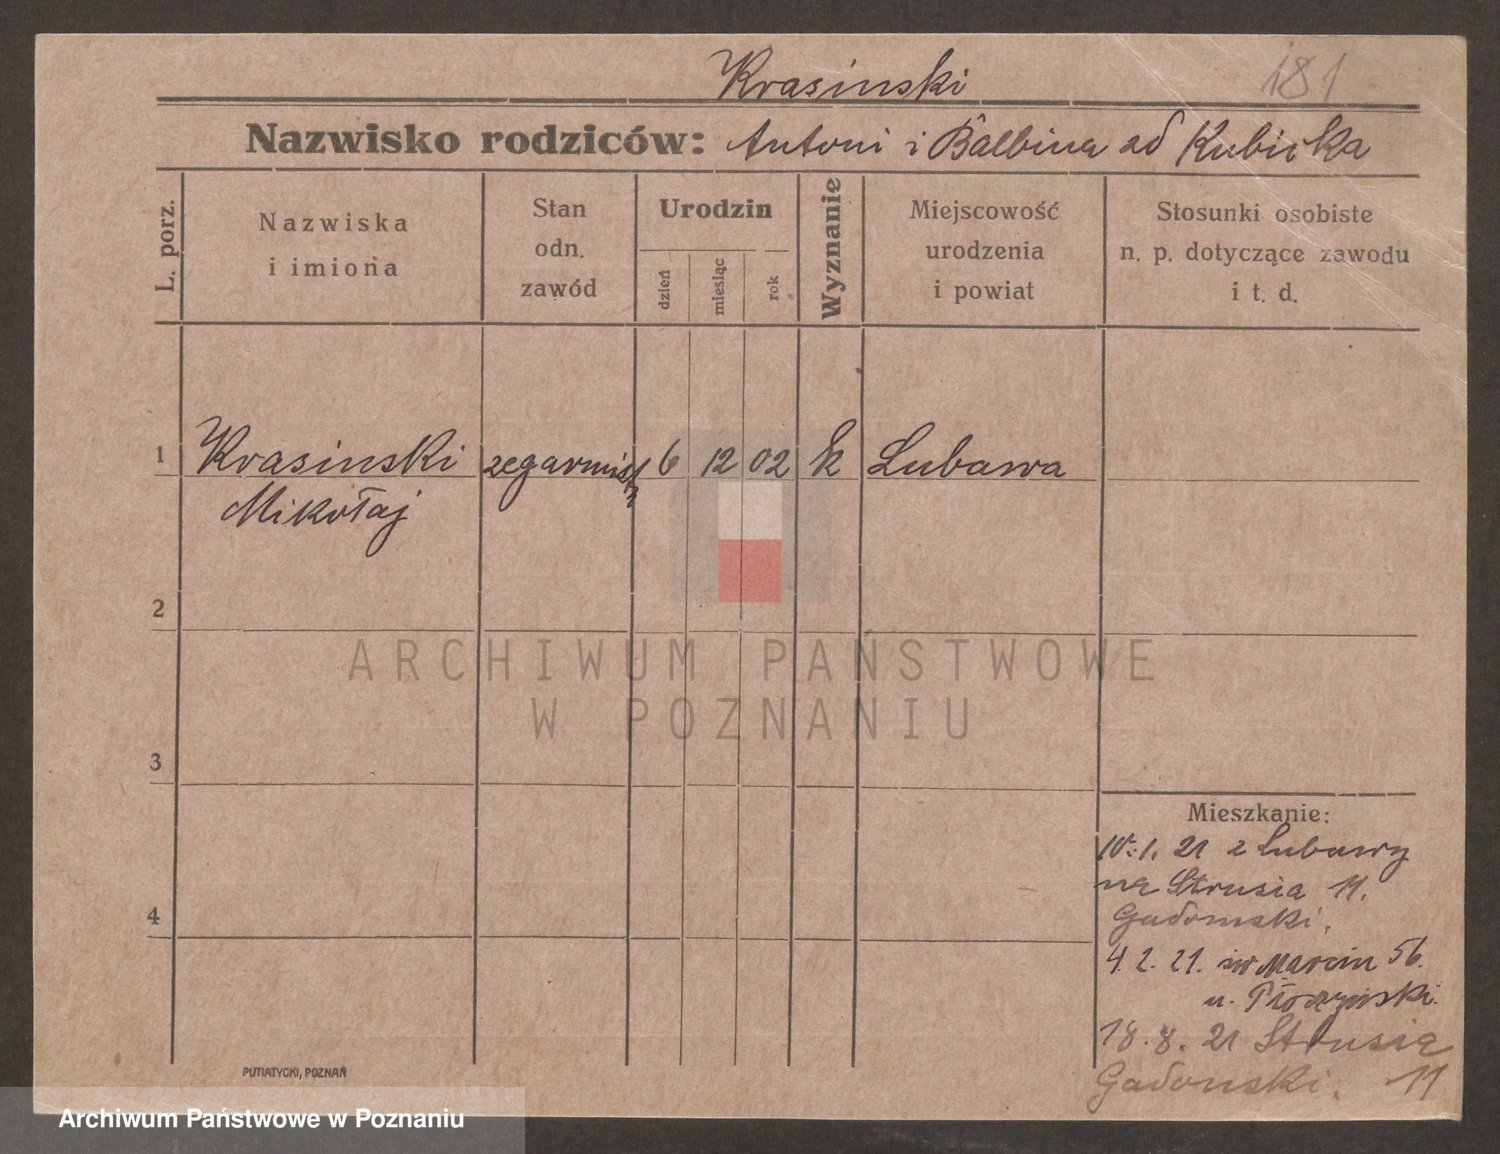 Krasinski
181
Nazwisko rodziców: Antoni i Balbina od Kubicka
L. porz.
Nazwiska
i imiona
Stan
odn.
zawód
Urodzin
dzień
miesiąc
rok
Wyznanie
Miejscowość
urodzenia
i powiat
Stosunki osobiste
n. p. dotyczące zawodu
i t. d.
1 Krasinski zegarmistrz 6 12 02 k Lubawa
Mikołaj
2
3
4
ARCHIWUM PAŃSTWOWE
W POZNANIU
Mieszkanie:
10.1. 21 z Lubawy
na Strusia 11.
Gadomski.
4. 2. 21. św Marcin 56.
u.
18. 8. 21 Strusia
Gadonski. 11
PUTIATYCKI, POZNAŃ
Archiwum Państwowe w Poznaniu